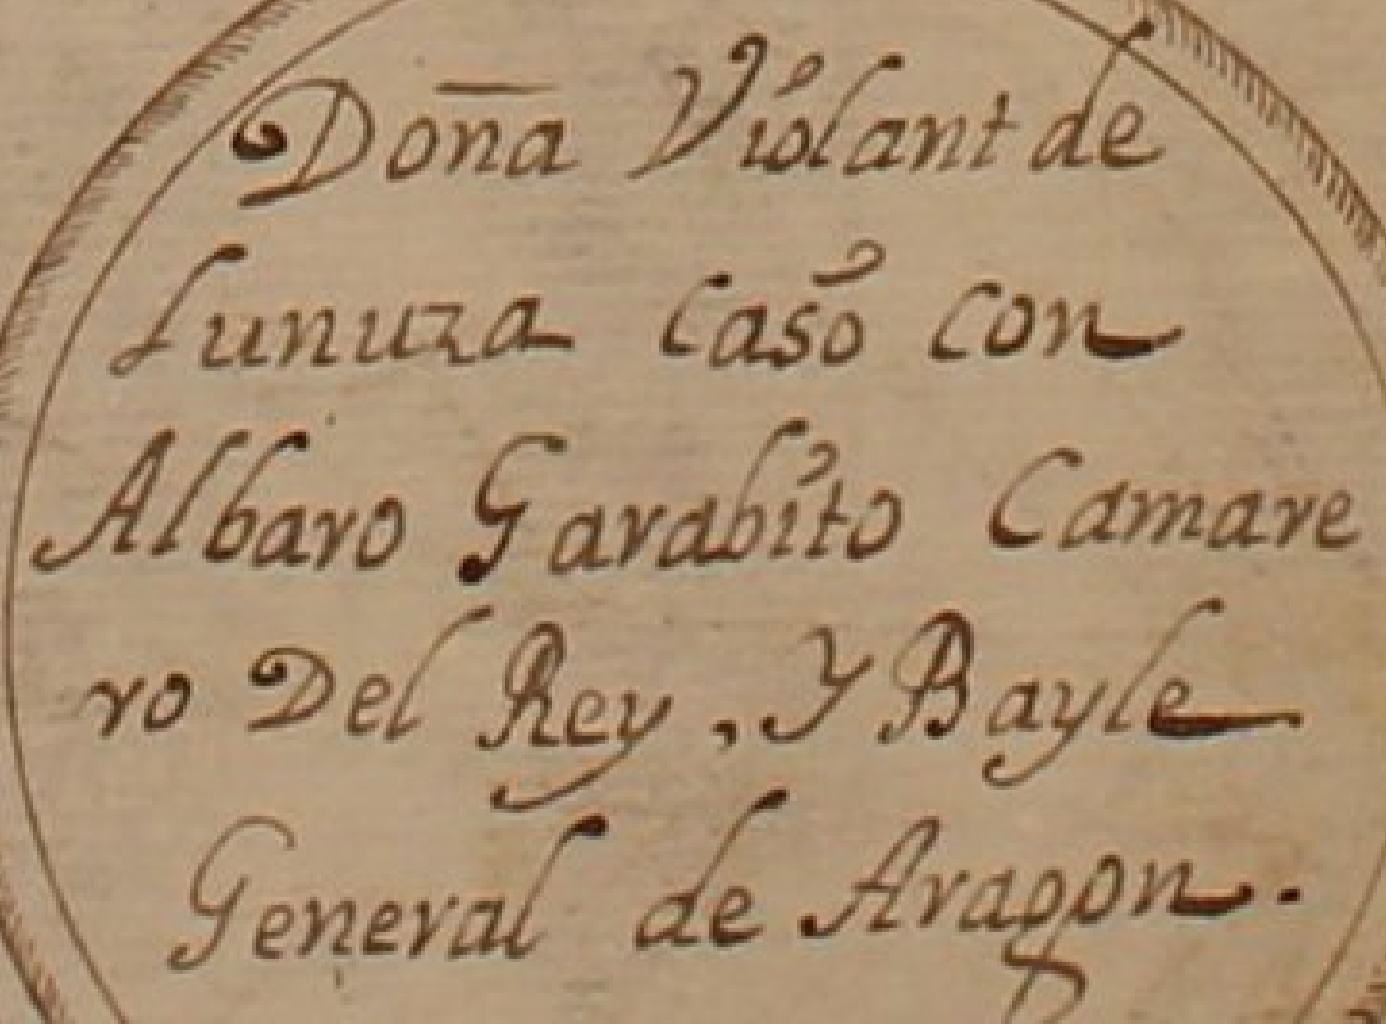 Doña Violant de
Lunuza casó con
Albaro Garabito Camare
ro Del Rey, Y Bayle
General de Aragon.